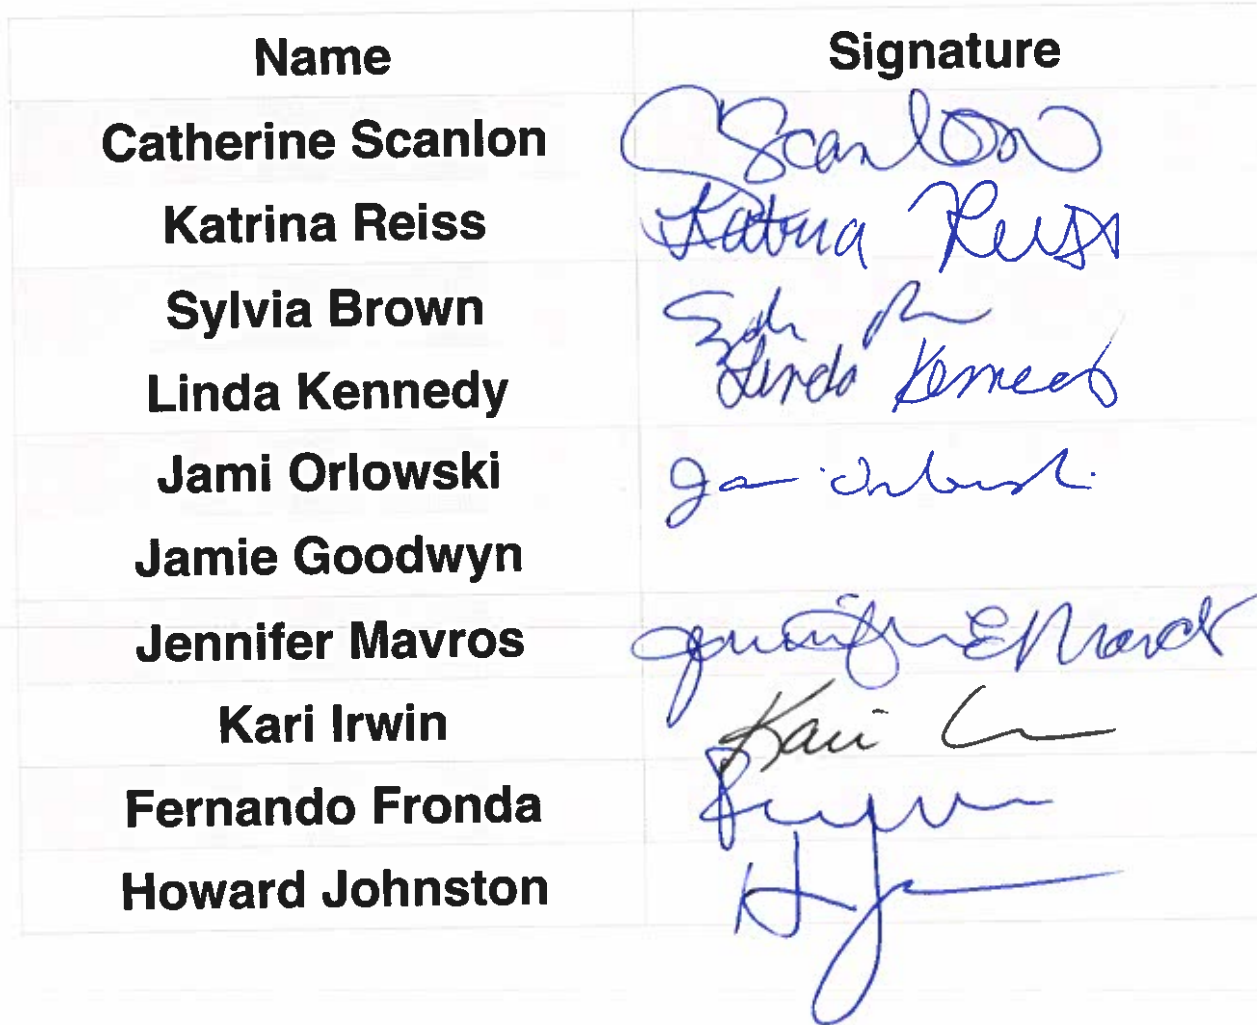 Name Signature
Catherine Scanlon CScanlon
Katrina Reiss Katrina Reiss
Sylvia Brown
Linda Kennedy Linda Kennedy
Jami Orlowski
Jamie Goodwyn
Jennifer Mavros
Kari Irwin Kari
Fernando Fronda
Howard Johnston